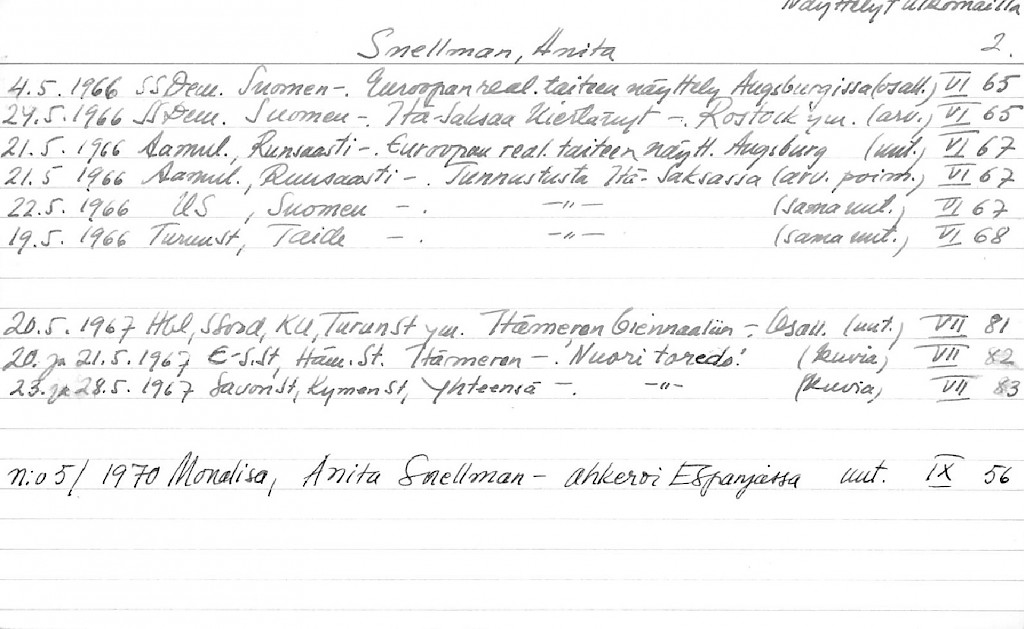 Näyttelyt ulkomailla
Snellman, Anita 2.
4.5. 1966 SSDem. Suomen -. Euroopan real. taiteen näyttely Augsburgissa (osall.) VI 65
24.5. 1966 SSDem. Suomen -. Itä-Saksaa kiertänyt -. Rostock ym. (arv.) VI 65
21.5. 1966 Aamul., Runsaasti -. Euroopan real. taiteen näytt. Augsburg (uut.) VI 67
21.5 1966 Aamul., Runsaasti -. Tunnustusta Itä-Saksassa (arv. poim.) VI 67
22.5. 1966 US, Suomen -. -"- (sama uut.) VI 67
19.5. 1966 TurunSt, Taide -. -"- (sama uut.) VI 68
20.5. 1967 Hbl, SSozd, KU, TurunSt ym. Itämeren biennaaliin -. Osall. (uut.) VII 81
20. ja 21.5. 1967 E-S.St, Häm. St. Itämeren -. 'Nuori toredo'. (kuvia) VII 82
23. ja 28.5. 1967 SavonSt, KymenSt, Yhteensä -. -"- (kuvia) VII 83
n:o 5/ 1970 Monalisa, Anita Snellman - ahkeroi Espanjassa uut. IX 56